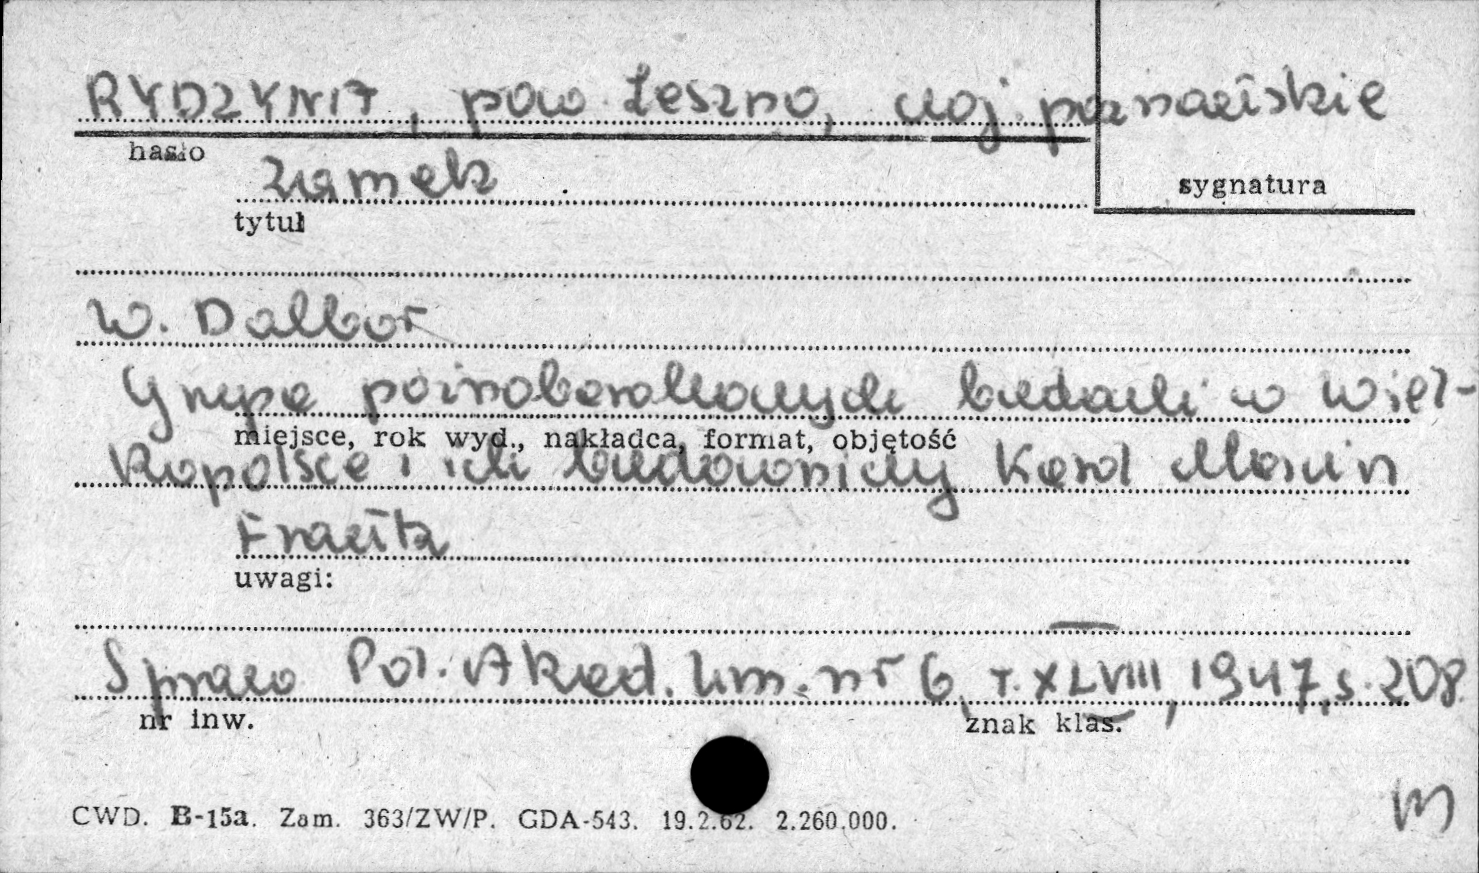 RYDZYNA, pow Leszno, woj poznańskie
hasło
zamek
sygnatura
tytuł
W. Dalbor
Grupa późnobarokowych budowli w Wiel-
miejsce, rok wyd., nakładca, format, objętość
kopolsce i ich budowniczy Karol Marcin
Frantz
uwagi:
Spraw Pol. Akad. Um. nr 6, T. XLVIII, 1947, s. 208
nr inw.
znak klas.
CWD. B-15a. Zam. 363/ZW/P. GDA-543. 19.2.62. 2.260.000.
m